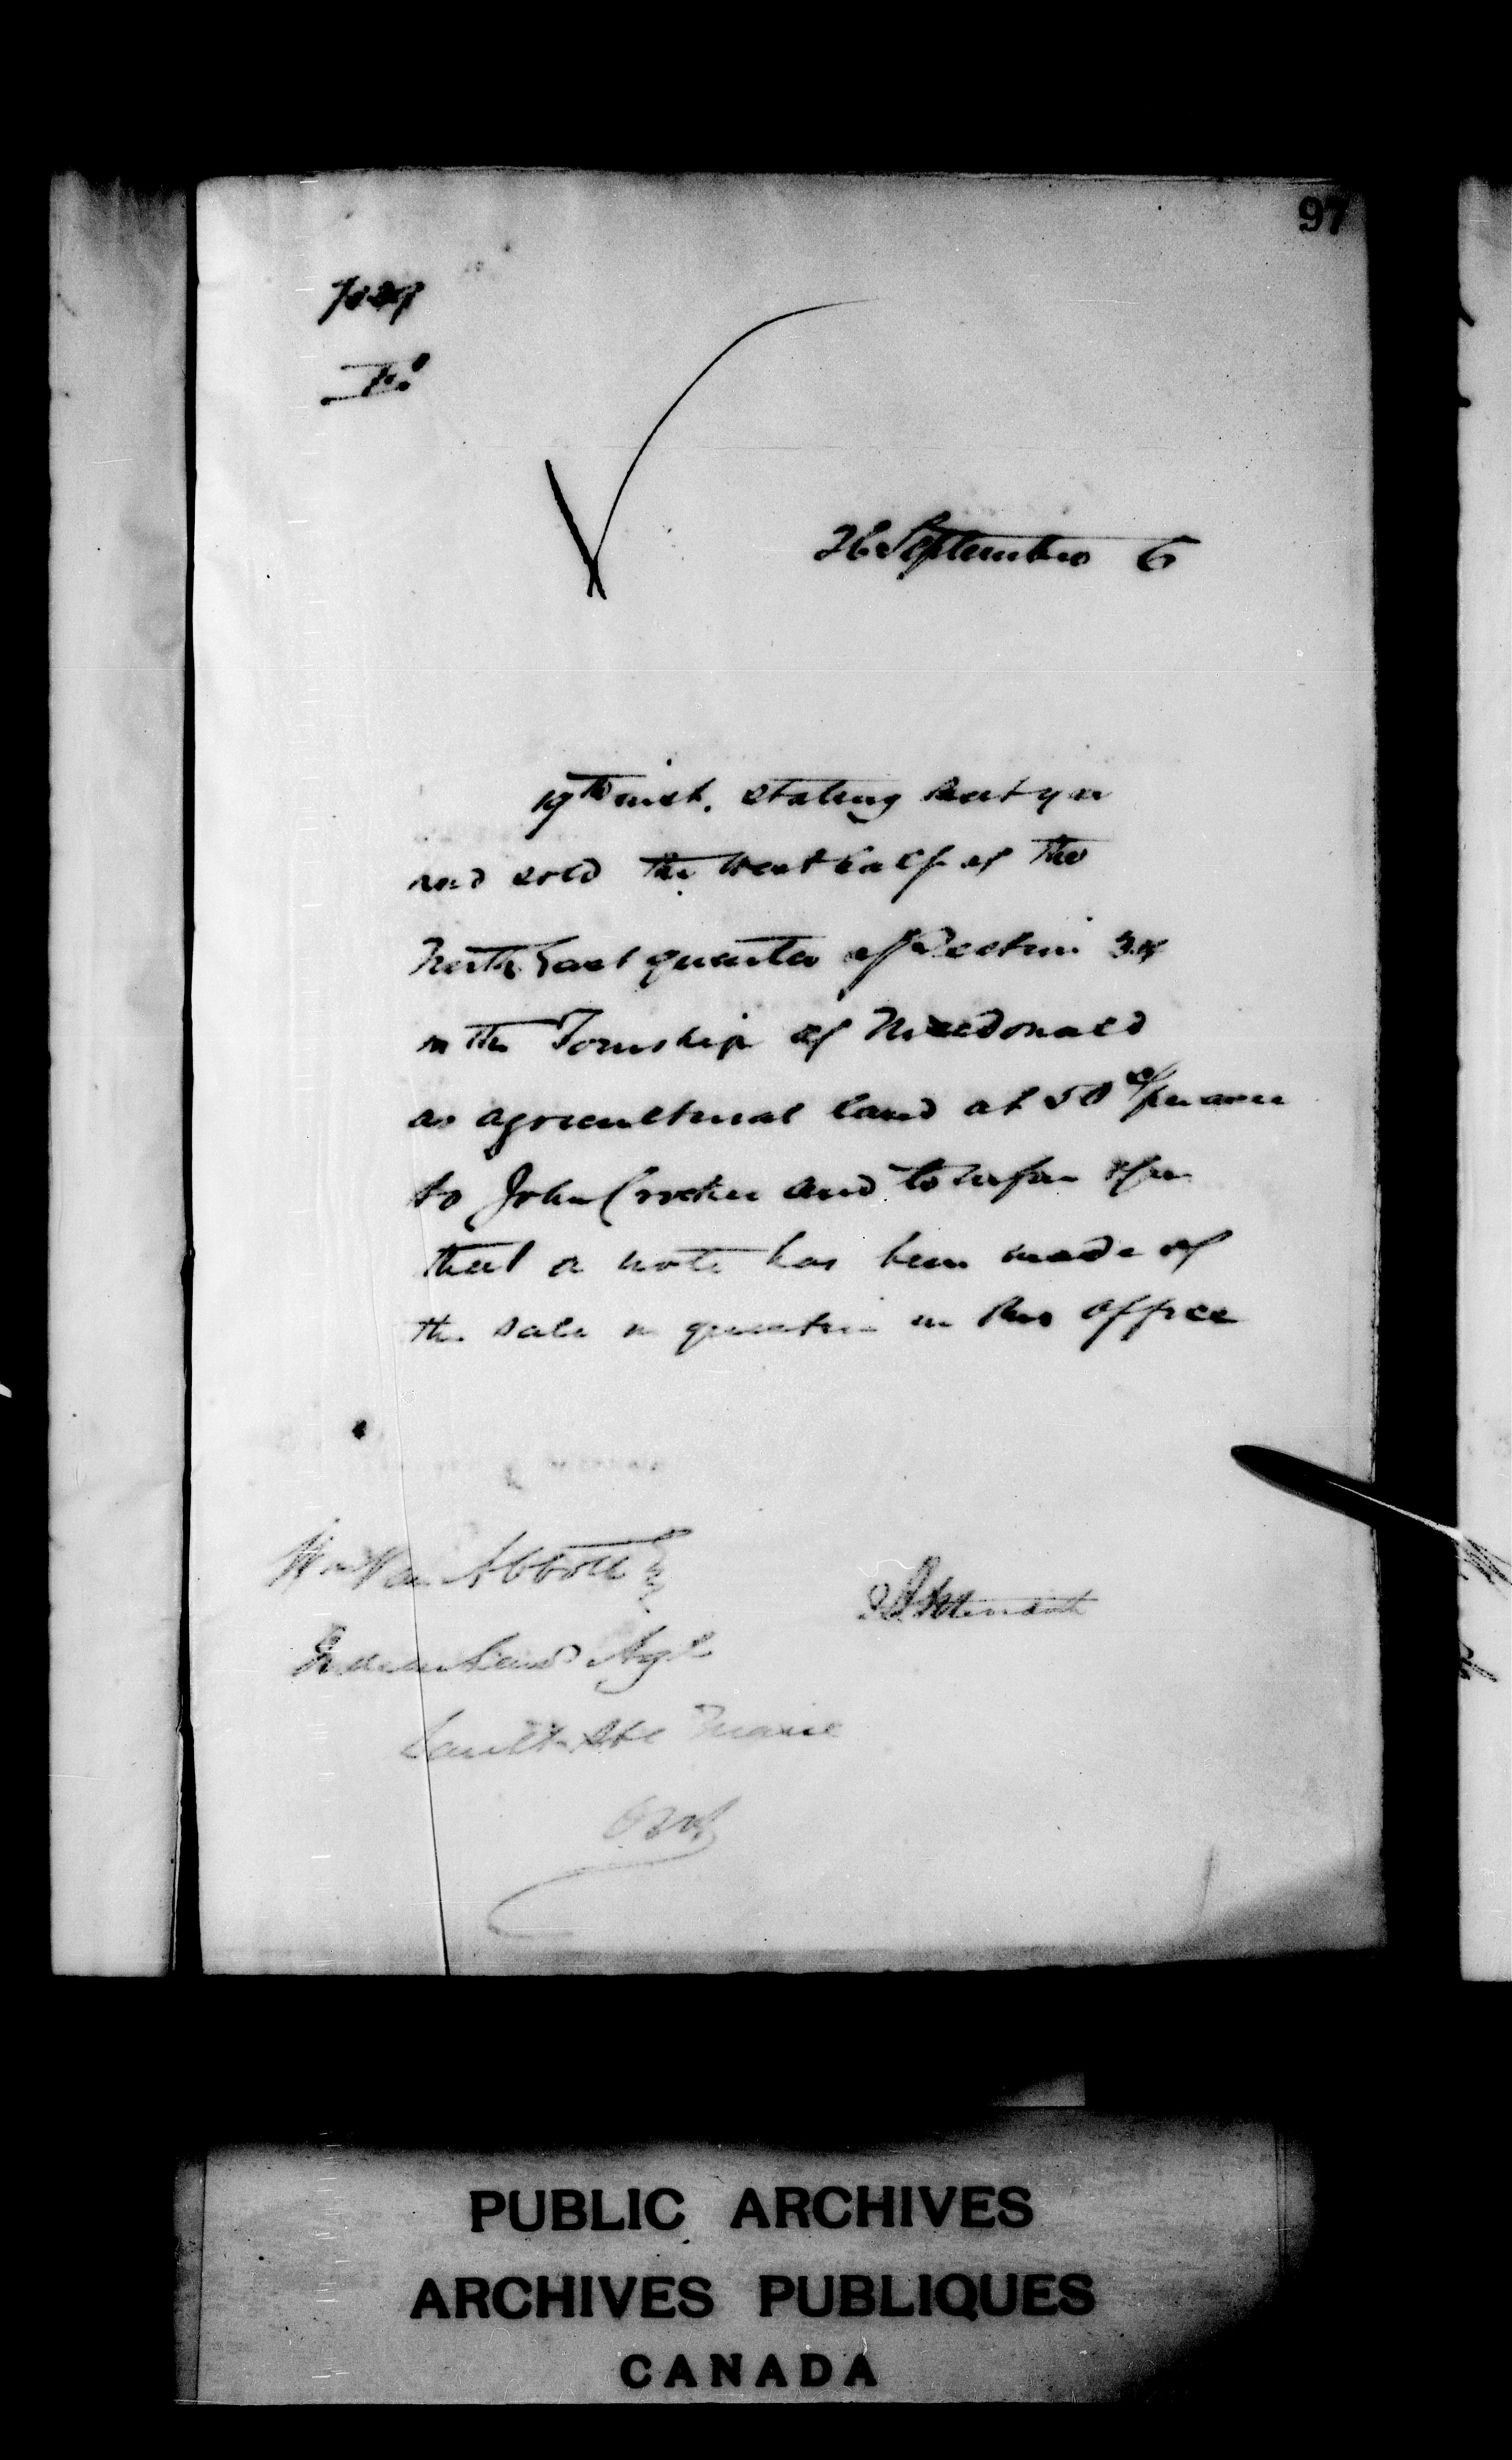 97
26 September 6
19th inst. stating that you
had sold the West half of the
North East quarter of Section
in the Township of Macdonald
as agricultural land at 50 c/ per acre
to John Crocker and to inform you
that a note has been made of
the sale in question in this office
Wm Van Abbott Esq
Indian Land Agt
Sault Ste Marie
Ont
PUBLIC ARCHIVES
ARCHIVES PUBLIQUES
CANADA